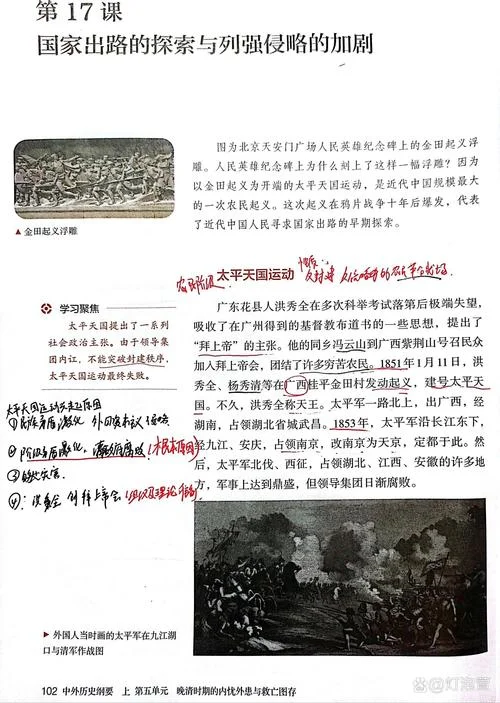 第 17 课
国家出路的探索与列强侵略的加剧
图为北京天安门广场人民英雄纪念碑上的金田起义浮
雕。人民英雄纪念碑上为什么刻上了这样一幅浮雕？因为
以金田起义为开端的太平天国运动，是近代中国规模最大
的一次农民起义。这次起义在鸦片战争十年后爆发，代表
了近代中国人民寻求国家出路的早期探索。
▲ 金田起义浮雕
农民阶级
太平天国运动
反封建
学习聚焦
太平天国提出了一系列
社会政治主张。由于领导集
团内讧，不能突破封建秩序，
太平天国运动最终失败。
广东花县人洪秀全在多次科举考试落第后极端失望，
吸收了在广州得到的基督教布道书的一些思想，提出了
“拜上帝”的主张。他的同乡冯云山到广西紫荆山号召民众
加入拜上帝会，团结了许多穷苦农民。1851年1月11日，洪
秀全、杨秀清等在广西桂平金田村发动起义，建号太平天
国。不久，洪秀全称天王。太平军一路北上，出广西，经
湖南，占领湖北省城武昌。1853年，太平军沿长江东下，
经九江、安庆，占领南京，改南京为天京，定都于此。然
后，太平军北伐、西征，占领湖北、江西、安徽的许多地
方，军事上达到鼎盛，但领导集团日渐腐败。
① 民族矛盾激化
② 阶级矛盾激化，清政府腐败（根本原因）
③ 自然灾害
④：洪秀全 创拜上帝会
▶ 外国人当时画的太平军在九江湖
口与清军作战图
102 中外历史纲要 上 第五单元 晚清时期的内忧外患与救亡图存
@灯泡萱